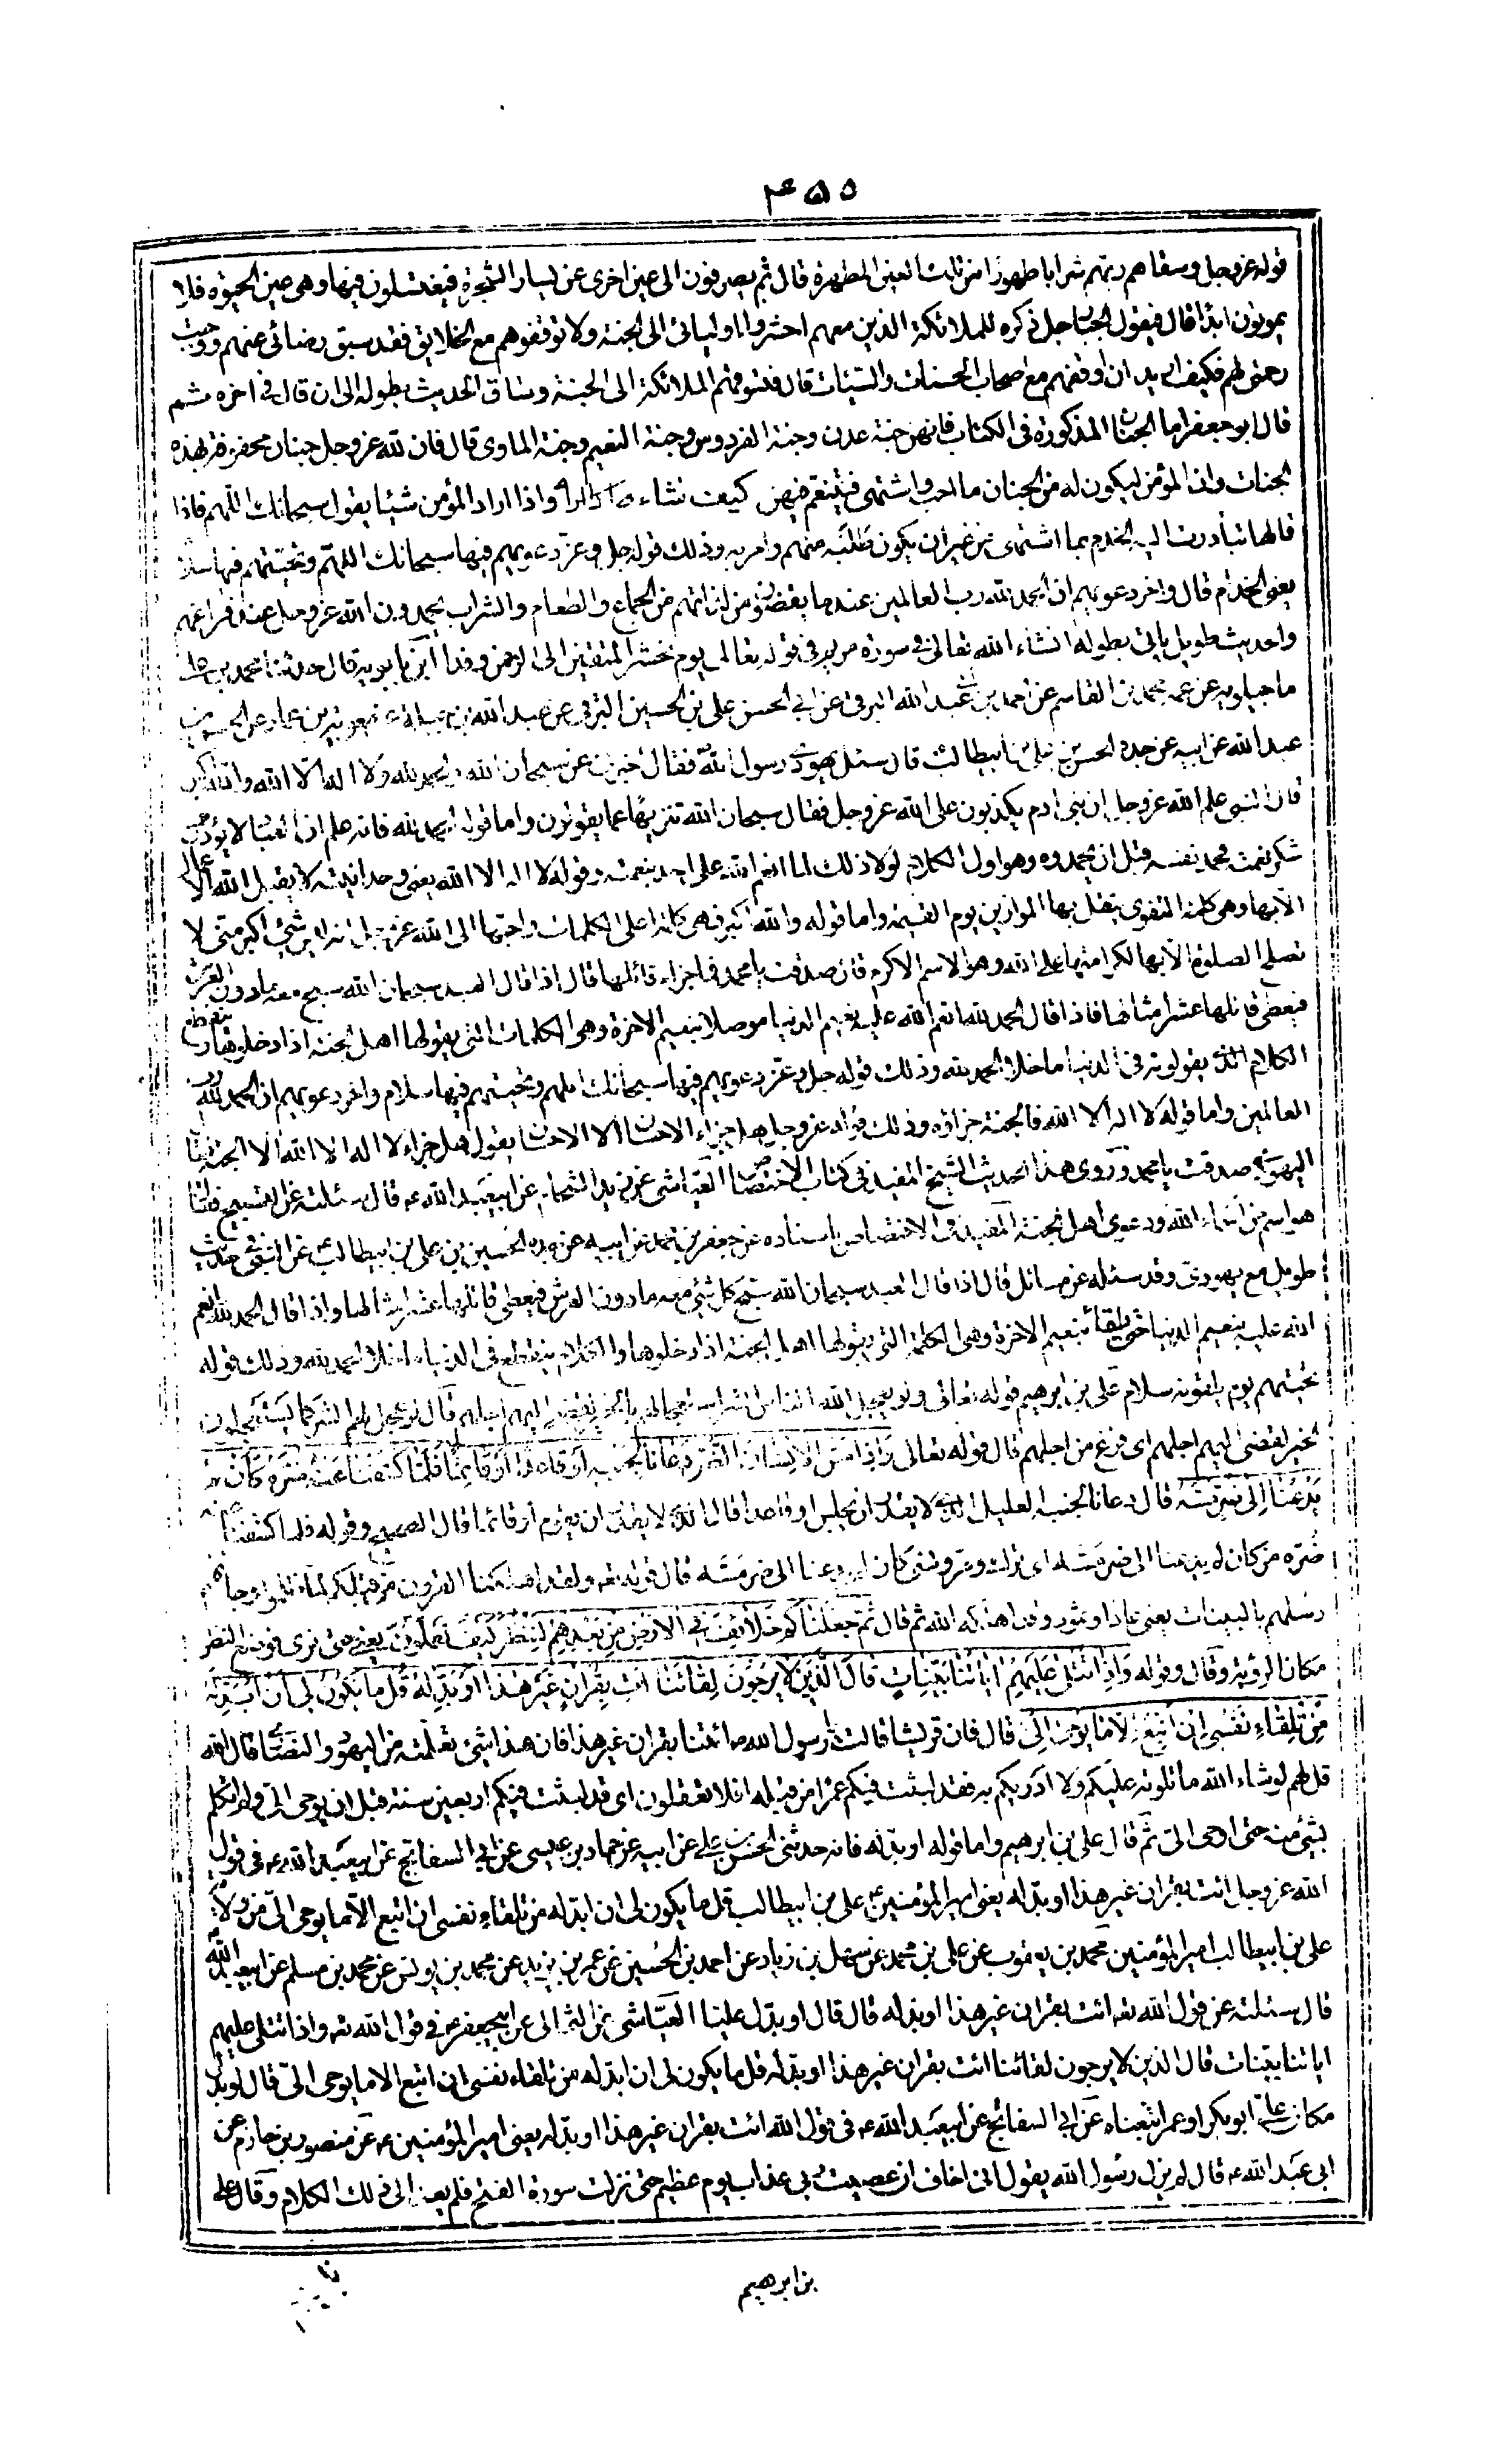 ۴۵۵
قوله عز وجل وسقاهم ربهم شرابا طهورا من تلك العين المطهرة قال ثم يصرفون الى عين اخرى عن يسار الشجرة فيغتسلون فيها وهى عين الحيوة فلا
يموتون ابدا قال فيقول الجبار جل ذكره للملائكة الذين معهم احشروا اوليائى الى الجنة ولا توقفوهم مع الخلايق فقد سبق رضائى عنهم ووجبت
رحمتى لهم فكيف اريد ان اوقفهم مع اصحاب الحسنات والسيئات قال فتسوقهم الملائكة الى الجنة وساق الحديث بطوله الى ان قال فى اخره ثم
قال ابو جعفر اما الجنان المذكورة فى الكتاب فانهن جنة عدن وجنة الفردوس وجنة النعيم وجنة الماوى قال فان لله عز وجل جنان محفوفة بهذه
الجنات وان المؤمن ليكون له من الجنان ما احب واشتهى فيتنعم فيهن كيف نشاء واذا اراد المؤمن شيئا يقول سبحانك اللهم فاذا
قالها تبادرت اليه الخدم بما اشتهى من غير ان يكون طلبه منهم وامر به وذلك قوله جل وعز دعويهم فيها سبحانك اللهم وتحيتهم فيها سلام
يعنى الخدام قال واخر دعويهم ان الحمد لله رب العالمين عند ما يقضون من لذاتهم من الجماع والطعام والشراب يحمدون الله عز وجل عند فراغهم
والحديث طويل ياتى بطوله انشاء الله تعالى فى سورة مريم فى قوله تعالى يوم نحشر المتقين الى الرحمن وفدا ابن بابويه قال حدثنا محمد بن على
ماجيلويه عن عمه محمد بن القاسم عن احمد بن ابى عبد الله البرقى عن ابى الحسن على بن الحسين البرقى عن عبد الله بن جبلة عن معوية بن عمار عن الحسن بن
عبد الله عن ابيه عن جده الحسن بن على بن ابيطالب قال سئل يهودى رسول الله فقال اخبرنى عن سبحان الله والحمد لله ولا اله الا الله والله اكبر
قال النبى علم الله عز وجل ان بنى ادم يكذبون على الله عز وجل فقال سبحان الله تنزيها عما يقولون واما قوله الحمد لله فانه علم ان العباد لا يؤدون
شكر نعمته فحمد نفسه قبل ان يحمدوه وهو اول الكلام لولا ذلك لما انعم الله على احد بنعمته وقوله لا اله الا الله يعنى وحدانيته لا يقبل الله الاعمال
الا بها وهى كلمة التقوى يثقل بها الموازين يوم القيمة واما قوله والله اكبر فهى كلمة اعلى الكلمات واحبها الى الله عز وجل شئ اكبر منى لا
تصلح الصلوة الا بها لكرامتها على الله وهو الاسم الاكرم قال صدقت يا محمد فما جزاء قائلها قال اذا قال العبد سبحان الله سبح معه مادون العرش
فيعطى قائلها عشر امثالها فاذا قال الحمد لله انعم الله عليه بنعيم الدنيا موصلا بنعيم الاخرة وهى الكلمات التى يقولها اهل الجنة اذا دخلوها وينقطع
الكلام الذى يقولونه فى الدنيا ما خلا الحمد لله وذلك قوله جل وعز دعويهم فيها سبحانك اللهم وتحيتهم فيها سلام واخر دعويهم ان الحمد لله رب
العالمين واما قوله لا اله الا الله فالجنة جزاؤه وذلك قوله عز وجل هل جزاء الاحسان الا الاحسان يقول هل جزاء لا اله الا الله الا الجنة فقال
اليهودى صدقت يا محمد وروى هذا الحديث الشيخ المفيد فى كتاب الاختصاص العياشى عن زيد الشحام عن ابيعبد الله عه قال سئلته عن التسبيح فقال
هو اسم من اسماء الله ودعوى اهل الجنة المفيد فى الاختصاص باسناده عن جعفر بن محمد عن ابيه عن جده الحسين بن على بن ابيطالب عن النبى فى حديث
طويل مع يهودى وقد سئله عن مسائل قال اذا قال العبد سبحان الله سبح كل شئ معه مادون العرش فيعطى قائلها عشر امثالها واذا قال الحمد لله انعم
الله عليه بنعيم الدنيا حتى يلقاه بنعيم الاخرة وهى الكلمة التى يقولها اهل الجنة اذا دخلوها والكلام ينقطع فى الدنيا ما خلا الحمد لله وذلك قوله
تحيتهم يوم يلقونه سلام على بن ابرهيم قوله تعالى ولو يعجل الله للناس الشر استعجالهم بالخير لقضى اليهم اجلهم قال لو عجل لهم الشر كما يستعجلون
الخير لقضى اليهم اجلهم اى فرغ من اجلهم قال قوله تعالى واذا مس الانسان الضر دعانا لجنبه او قاعدا او قائما فلما كشفنا عنه ضره مر كان لم
يدعنا الى ضر مسه قال دعانا لجنبه العليل الذى لا يقدر ان يجلس او قاعدا قال الذى لا يقدر ان يقوم او قائما قال الصحيح وقوله فلما كشفنا عنه
ضره مر كان لم يدعنا الى ضر مسه اى ترك ومر ونسى كان لم يدعنا الى ضر مسه قال قوله تعه ولقد اهلكنا القرون من قبلكم لما ظلموا وجائتهم
رسلهم بالبينات يعنى عادا وثمود ومن اهلكه الله ثم قال ثم جعلناكم خلائف فى الارض من بعدهم لننظر كيف تعملون يعنى حتى نرى فوضع النظر
مكان الرؤية وقال وقوله واذا تتلى عليهم اياتنا بينات قال الذين لا يرجون لقائنا ائت بقران غير هذا او بدله قل ما يكون لى ان ابدله
من تلقاء نفسى ان اتبع الا ما يوحى الى قال فان قريشا قالت لرسول الله ص ائتنا بقران غير هذا فان هذا شئ تعلمته من اليهود والنصارى قال الله
قل لهم لو شاء الله ما تلوته عليكم ولا ادريكم به فقد لبثت فيكم عمرا من قبله افلا تعقلون اى قد لبثت فيكم اربعين سنة قبل ان يوحى الى ولم اتكلم
بشئ منه حتى اوحى الى ثم قال على بن ابرهيم واما قوله او بدله فانه حدثنى الحسن بن على عن ابيه عن حماد بن عيسى عن ابى السفاتج عن ابيعبد الله عه فى قول
الله عز وجل ائت بقران غير هذا او بدله يعنى امير المؤمنين ع على بن ابيطالب قل ما يكون لى ان ابدله من تلقاء نفسى ان اتبع الا ما يوحى الى من ولاية
على بن ابيطالب امير المؤمنين محمد بن يعقوب عن على بن محمد عن سهل بن زياد عن احمد بن الحسين عن عمر بن يزيد عن محمد بن يونس عن محمد بن مسلم عن ابيعبد الله
قال سئلته عن قول الله تعه ائت بقران غير هذا او بدله قال قال او بدل علينا العياشى عن الثمالى عن ابيجعفر عه فى قول الله تعه واذا تتلى عليهم
اياتنا بينات قال الذين لا يرجون لقائنا ائت بقران غير هذا او بدله قل ما يكون لى ان ابدله من تلقاء نفسى ان اتبع الا ما يوحى الى قال او بدل
مكان على ابو بكر او عمر اتبعناه عن ابى السفاتج عن ابيعبد الله عه فى قول الله ائت بقران غير هذا او بدله يعنى امير المؤمنين عه عن منصور بن حازم عن
ابى عبد الله عه قال لم يزل رسول الله يقول انى اخاف ان عصيت ربى عذاب يوم عظيم حتى نزلت سورة الفتح فلم يعد الى ذلك الكلام وقال على
بن ابرهيم